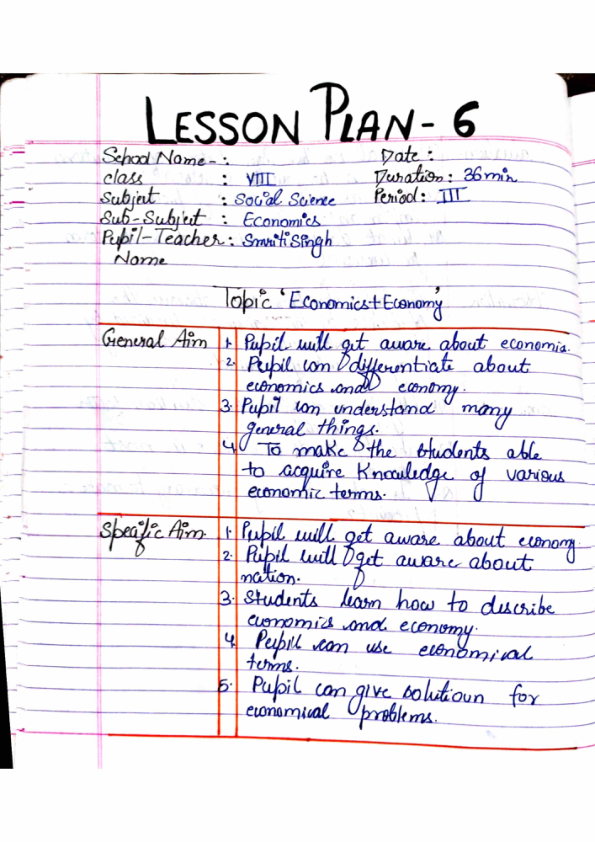 LESSON PLAN - 6
School Name - :
Date :
Class : VIII
Duration : 36 min
Subject : Social Science
Period : III
Sub-Subject : Economics
Pupil-Teacher : Smriti Singh
Name
Topic 'Economics + Economy'
General Aim
1. Pupil will get aware about economis.
2. Pupil can differentiate about
economics and economy.
3. Pupil can understand many
general things.
4. To make the students able
to acquire Knowledge of various
economic terms.
Specific Aim.
1. Pupil will get aware about economy.
2. Pupil will get aware about
nation.
3. Students learn how to describe
economics and economy.
4. Pupil can use economical
terms.
5. Pupil can give solutioun for
economical problems.